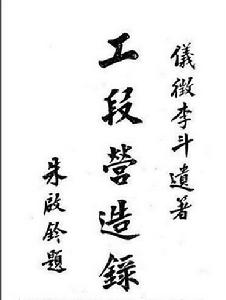 儀徵李斗遺著
工段營造録
朱啟鈐題